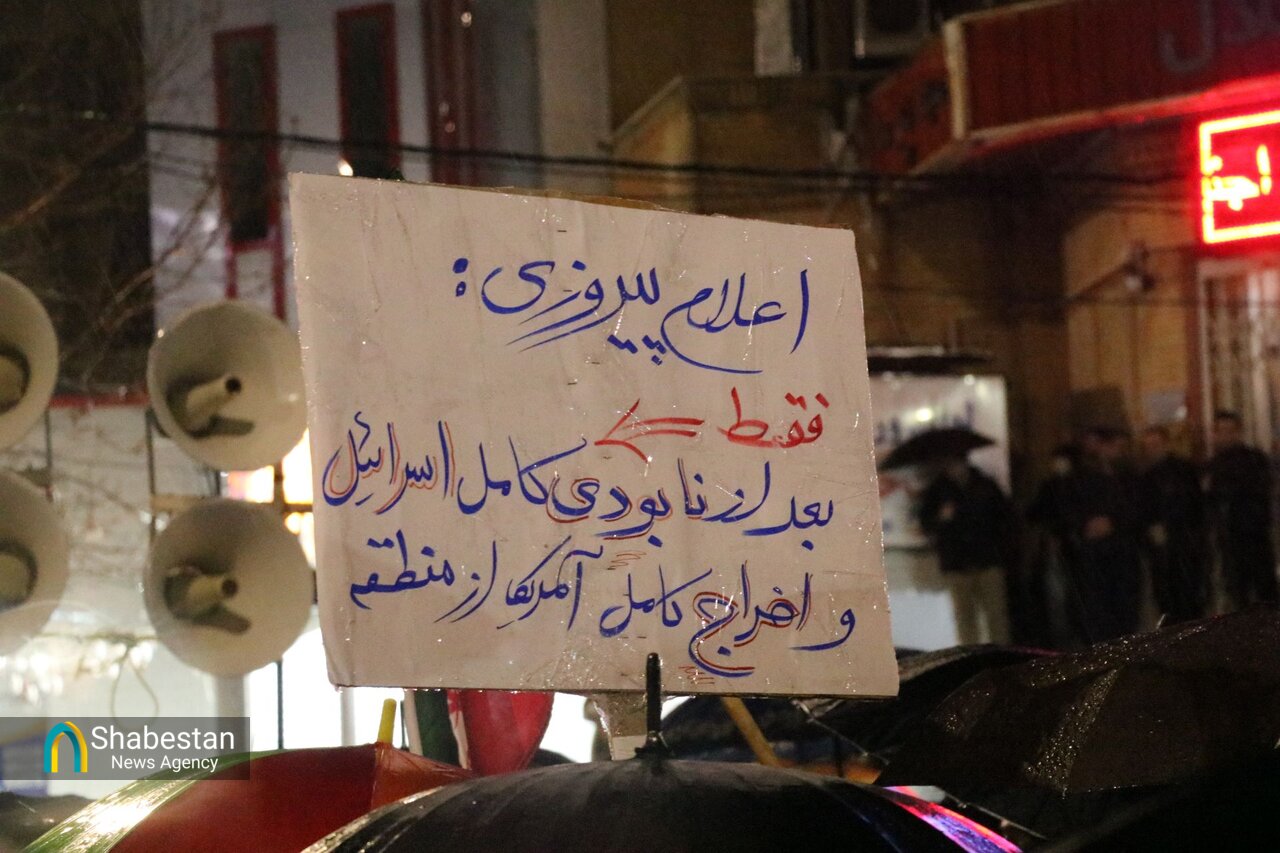 اعلام پیروزی :
فقط ←
بعد از نابودی کامل اسرائیل
و اخراج کامل آمریکا از منطقه
Shabestan
News Agency